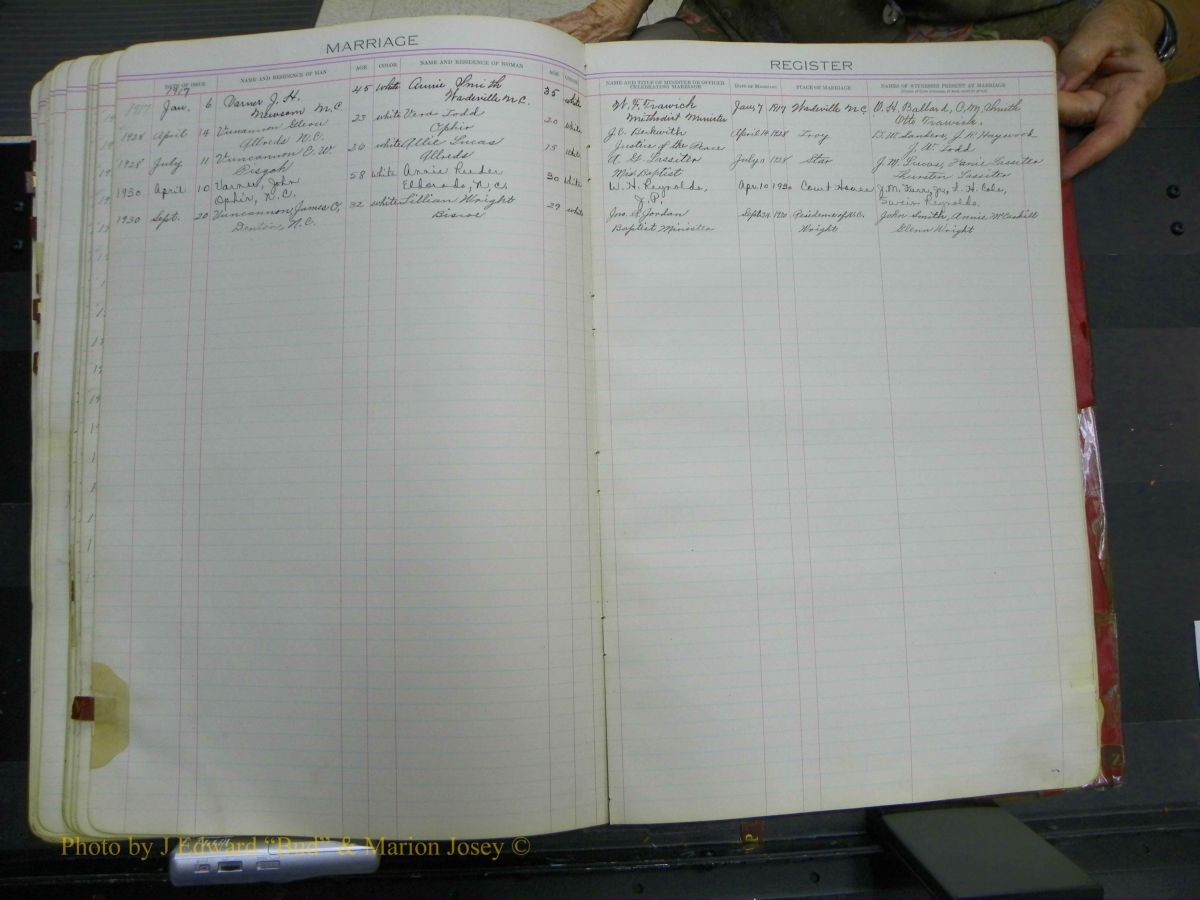 MARRIAGE
DATE OF ISSUE NAME AND RESIDENCE OF MAN AGE COLOR NAME AND RESIDENCE OF WOMAN AGE COLOR
1917
1917 Jan. 6 Varner J. H. 45 white Annie Smith 35 white
Newsom N.C. Wadeville N.C.
1928 April 14 Vuncannon 23 white Vera Todd 20 white
Allreds N.C. Ophir
1928 July 11 Vuncannon C. W. 26 white Allie Lucas 15 white
Pisgah Allreds
1930 April 10 Varner, John 58 white Annie Reeder 30 white
Ophir, N.C. Eldorado, N.C.
1930 Sept. 20 Vuncannon, James C, 32 white Lillian Wright 29 white
Denton, N.C. Biscoe
REGISTER
NAME AND TITLE OF MINISTER OR OFFICER CELEBRATING MARRIAGE DATE OF MARRIAGE PLACE OF MARRIAGE NAMES OF WITNESSES PRESENT AT MARRIAGE
W. F. Trawick Jan. 7 1917 Wadeville N.C. V. H. Ballard, C. M. Smith
Methodist Minister Otto Trawick.
J. C. Beckwith April 14 1928 Troy D. W. Sanders, J. R. Haywood
Justice of the Peace J. W. Todd
A. G. Lassiter July 11 1928 Star J. M. Lassiter
Baptist Lassiter
W. H. Reynolds, Apr. 10 1930 Court House J. M. Furr, Jr, F. H. Cole,
J. P. Reynolds
Jno. S. Jordan Sept. 1930 Residence of Wright John Smith, Annie McCaskill
Baptist Minister Glenn Wright
Photo by J Edward “Bud” & Marion Josey ©